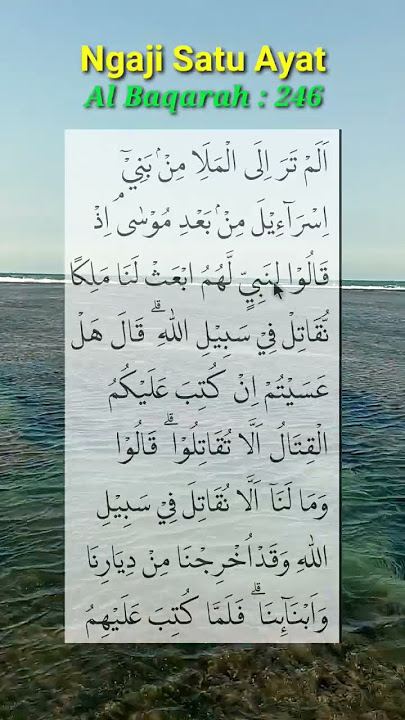 Ngaji Satu Ayat
Al Baqarah : 246
اَلَمْ تَرَ اِلَى الْمَلَاِ مِنْۢ بَنِيْٓ
اِسْرَاۤءِيْلَ مِنْۢ بَعْدِ مُوْسٰىۘ اِذْ
قَالُوْا لِنَبِيٍّ لَّهُمُ ابْعَثْ لَنَا مَلِكًا
نُّقَاتِلْ فِيْ سَبِيْلِ اللّٰهِ ۗ قَالَ هَلْ
عَسَيْتُمْ اِنْ كُتِبَ عَلَيْكُمُ
الْقِتَالُ اَلَّا تُقَاتِلُوْا ۗ قَالُوْا
وَمَا لَنَآ اَلَّا نُقَاتِلَ فِيْ سَبِيْلِ
اللّٰهِ وَقَدْ اُخْرِجْنَا مِنْ دِيَارِنَا
وَاَبْنَاۤىِٕنَا ۗ فَلَمَّا كُتِبَ عَلَيْهِمُ